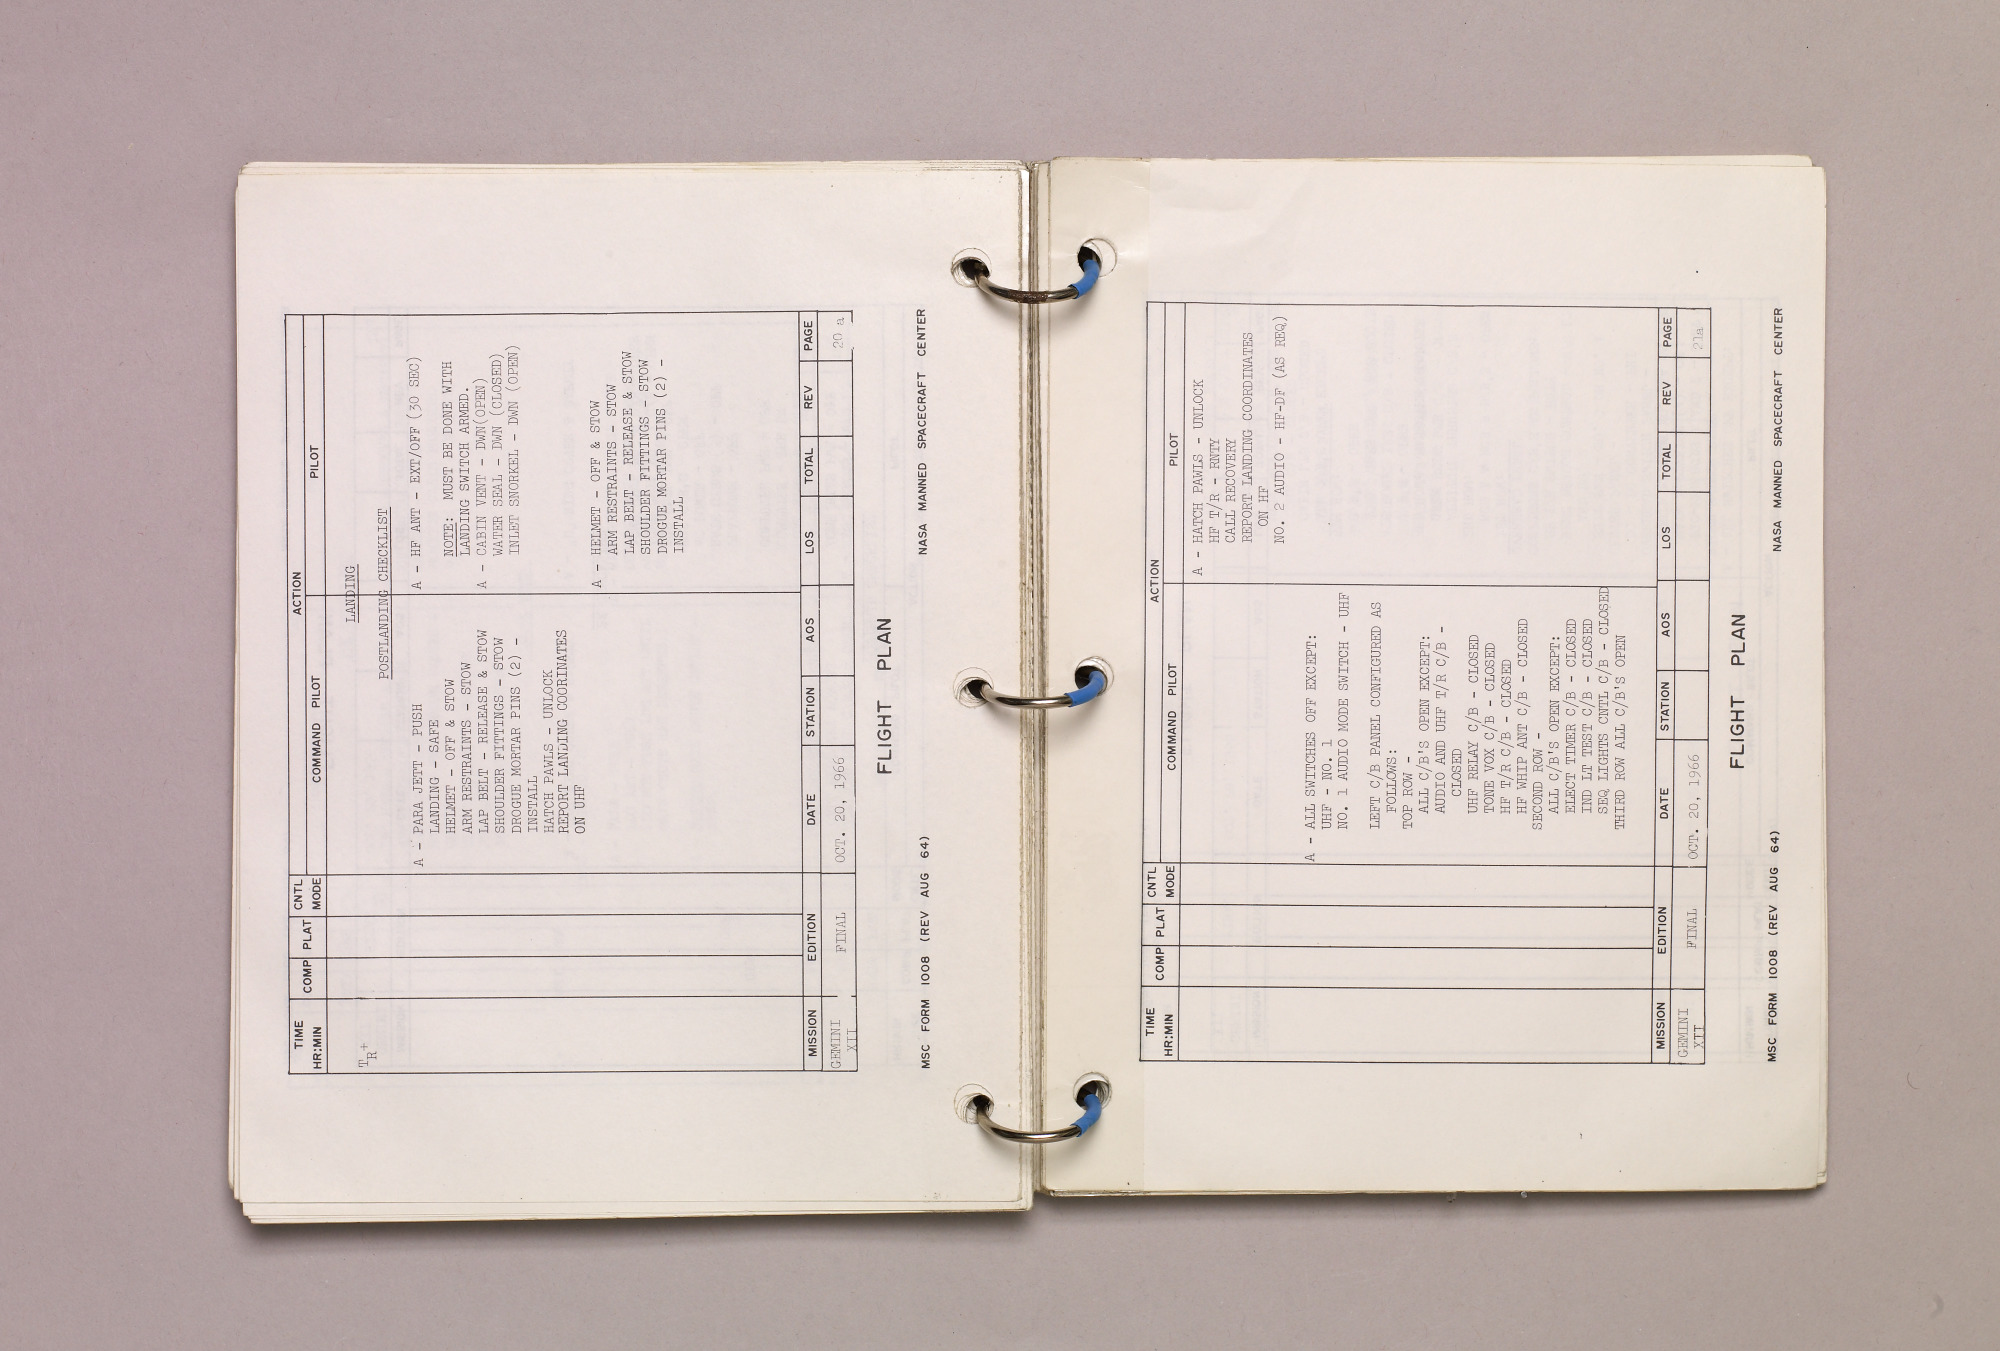 TIME HR:MIN
COMP
PLAT
CNTL MODE
ACTION
COMMAND PILOT
PILOT
TR+
LANDING
POSTLANDING CHECKLIST
A - PARA JETT - PUSH
LANDING - SAFE
HELMET - OFF & STOW
ARM RESTRAINTS - STOW
LAP BELT - RELEASE & STOW
SHOULDER FITTINGS - STOW
DROGUE MORTAR PINS (2) -
INSTALL
HATCH PAWLS - UNLOCK
REPORT LANDING COORDINATES
ON UHF
A - HF ANT - EXT/OFF (30 SEC)
NOTE: MUST BE DONE WITH
LANDING SWITCH ARMED.
A - CABIN VENT - DWN(OPEN)
WATER SEAL - DWN (CLOSED)
INLET SNORKEL - DWN (OPEN)
A - HELMET - OFF & STOW
ARM RESTRAINTS - STOW
LAP BELT - RELEASE & STOW
SHOULDER FITTINGS - STOW
DROGUE MORTAR PINS (2) -
INSTALL
MISSION
EDITION
DATE
STATION
AOS
LOS
TOTAL
REV
PAGE
GEMINI XII
FINAL
OCT. 20, 1966
20 a
FLIGHT PLAN
MSC FORM 1008 (REV AUG 64)
NASA MANNED SPACECRAFT CENTER
TIME HR:MIN
COMP
PLAT
CNTL MODE
ACTION
COMMAND PILOT
PILOT
A - HATCH PAWLS - UNLOCK
HF T/R - RNTY
CALL RECOVERY
REPORT LANDING COORDINATES
ON HF
NO. 2 AUDIO - HF-DF (AS REQ)
A - ALL SWITCHES OFF EXCEPT:
UHF - NO. 1
NO. 1 AUDIO MODE SWITCH - UHF
LEFT C/B PANEL CONFIGURED AS
FOLLOWS:
TOP ROW -
ALL C/B'S OPEN EXCEPT:
AUDIO AND UHF T/R C/B -
CLOSED
UHF RELAY C/B - CLOSED
TONE VOX C/B - CLOSED
HF T/R C/B - CLOSED
HF WHIP ANT C/B - CLOSED
SECOND ROW -
ALL C/B'S OPEN EXCEPT:
ELECT TIMER C/B - CLOSED
IND LT TEST C/B - CLOSED
SEQ LIGHTS CNTL C/B - CLOSED
THIRD ROW ALL C/B'S OPEN
MISSION
EDITION
DATE
STATION
AOS
LOS
TOTAL
REV
PAGE
GEMINI XII
FINAL
OCT. 20, 1966
21a
FLIGHT PLAN
MSC FORM 1008 (REV AUG 64)
NASA MANNED SPACECRAFT CENTER